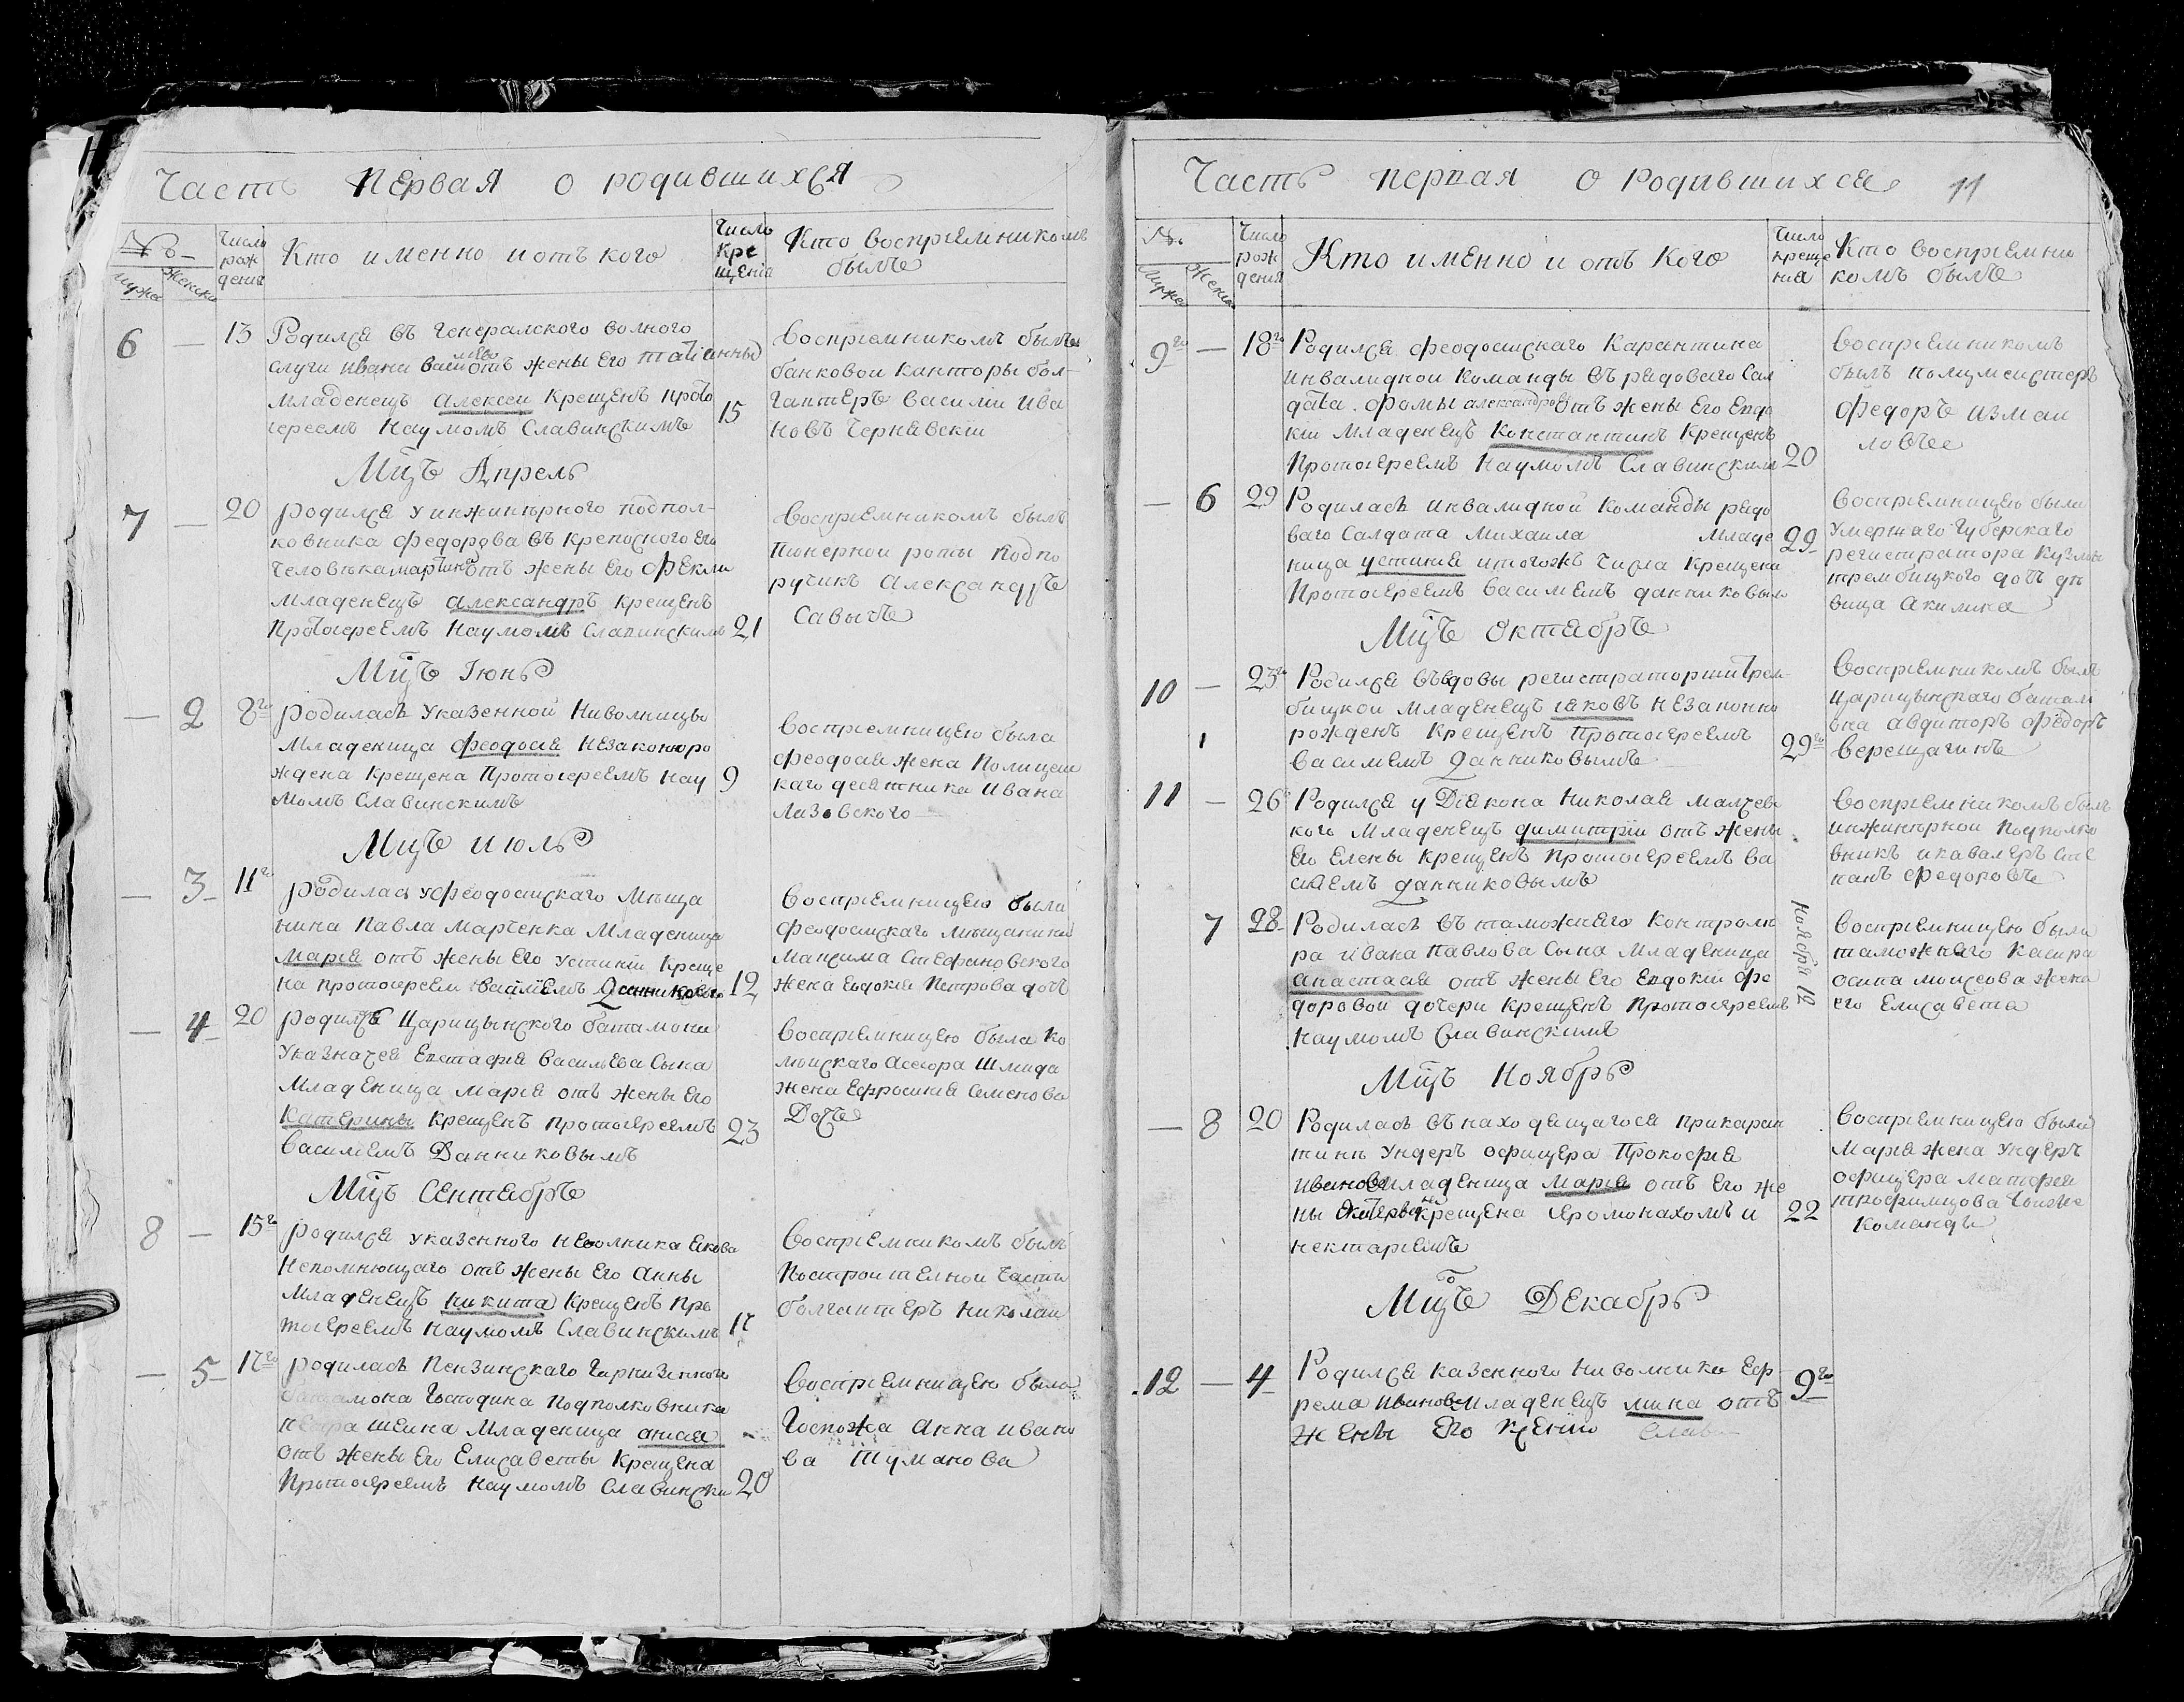 Часть первая о родившихся
№ъ
Мужес
Женска
Число рож дения
Кто именно и отъ кого
Число кре щения
Кто воспрiемникомъ былъ
6 — 13 Родился въ генералского волного
слуги Ивана отъ жены его татiанны
младенецъ алексеи крещенъ прото
iереемъ Наумомъ Славинскимъ 15
Воспрiемникомъ былъ
банковои канторы бол-
гантеръ василии Ива
новъ Чернявскiи
Мцъ Апрель
7 — 20 родился у инжинѣрного подпол-
ковника федорова въ крепосного его
человѣка мартина отъ жены его феклы
младенецъ александръ крещенъ
протоiереемъ Наумомъ Славинскимъ 21
Воспрiемникомъ былъ
Пионернои роты подпо
ручикъ Александръ
Савычъ
Мцъ Iюнь
— 2 8го родиласъ у казенной Ниволницы
младеница феодосiя незаконоро
ждена крещена Протоiереемъ Нау 9
момъ Славинскимъ
Воспрiемницею была
феодосия жена Полицеис
каго десятника Ивана
Лазовского
Мцъ июль
— 3 11го родилась у феодосiискаго мѣща
нина Павла Марченка младеница
Марiя отъ жены его устинiи креще
на протоiереем василiемъ Данниковым 12
Воспрiемницею была
феодосiискаго мѣщанина
Максима Стефановского
жена евдокiя Петрова дочъ
— 4 20 родился Царицынского баталиона
у казначея Евстафiя васильева сына
младеница марiя отъ жены его
катерины крещенъ протоiереемъ 23
василiемъ Данниковымъ
Воспрiемницею была ко
лѣжскаго асесора Шмида
жена Ефросиния Семенова
Дочъ
Мцъ Сентябръ
8 — 15го родился у казенного неволника якова
непомнющаго отъ жены его анны
младенецъ никита крещенъ про
тоiереемъ Наумомъ Славинскимъ 17
Воспрiемникомъ былъ
построителнои части
болгантеръ николаи
— 5 17го родиласъ Пензинскаго гарнизонного
баталиона Господина подполковника
петра шеина младеница анисiя
отъ жены его Елисаветы крещена
Протоiереемъ Наумомъ Славински 20
Воспрiемницею была
Госпожа Анна ивано
ва Туманова
Часть первая о родившихся 11
№.
Мужес
Женск
Число рож дения
Кто именно и отъ кого
Число креще ния
Кто воспрiемни комъ былъ
9го — 18го Родился феодосiискаго карантина
инвалиднои команды въ рядоваго сал
дата фомы александрова отъ жены его евдо
кiи младенецъ Константинъ крещенъ
Протоiереемъ Наумомъ Славинским 20
Воспрiемникомъ
былъ полицмеистеръ
федоръ измаи
ловъ
— 6 29 Родиласъ инвалиднои команды рядо
ваго салдата михаила младе 29
ница устиния и тогожъ числа крещена
Протоiереемъ василиемъ данниковым
Воспрiемницею была
умершаго губерскаго
регистратора кузмы
трембицкого дочъ дѣ
вица акилина
Мцъ Октябръ
10 — 23го Родился въ вдовы регистраторши трем
бицкои младенецъ iяковъ незаконно
рожденъ крещенъ Протоiереемъ 29го
василиемъ Данниковымъ
Воспрiемникомъ былъ
Царицынскаго баталi
она авдиторъ федоръ
верещагинъ
11 — 26 Родился у дiякона Николая малчевс
кого младенецъ димитрiи отъ жены
его Елены крещенъ протоiереемъ ва
силемъ Данниковымъ
Воспрiемникомъ былъ
инжинѣрнои подполко
вникъ и кавалеръ сте
панъ федоровъ
7 28 Родиласъ въ таможнего контроле
ра ивана павлова сына младеница
анастасия отъ жены его евдокiи фе
доровои дочери крещенъ Протоiереемъ
наумомъ славинскимъ
Ноября 12
Воспрiемницею была
таможнего касира
осипа моисеова жена
его Елисавета
Мцъ Ноябрь
— 8 20 Родиласъ въ находящагося прикаран
тинѣ ундеръ офицера Прокофия
иванова младеница Марiя отъ его же
ны крещена iеромонахомъ и 22
нектарiемъ
Воспрiемницею была
Марiя жена ундеръ
офицера матфея
трофимцова тоиже
команды
Мцъ Декабрь
12 — 4 Родился казенного ниволника Еф 9го
рема иванова младенецъ мина отъ
жены его Ксенiи